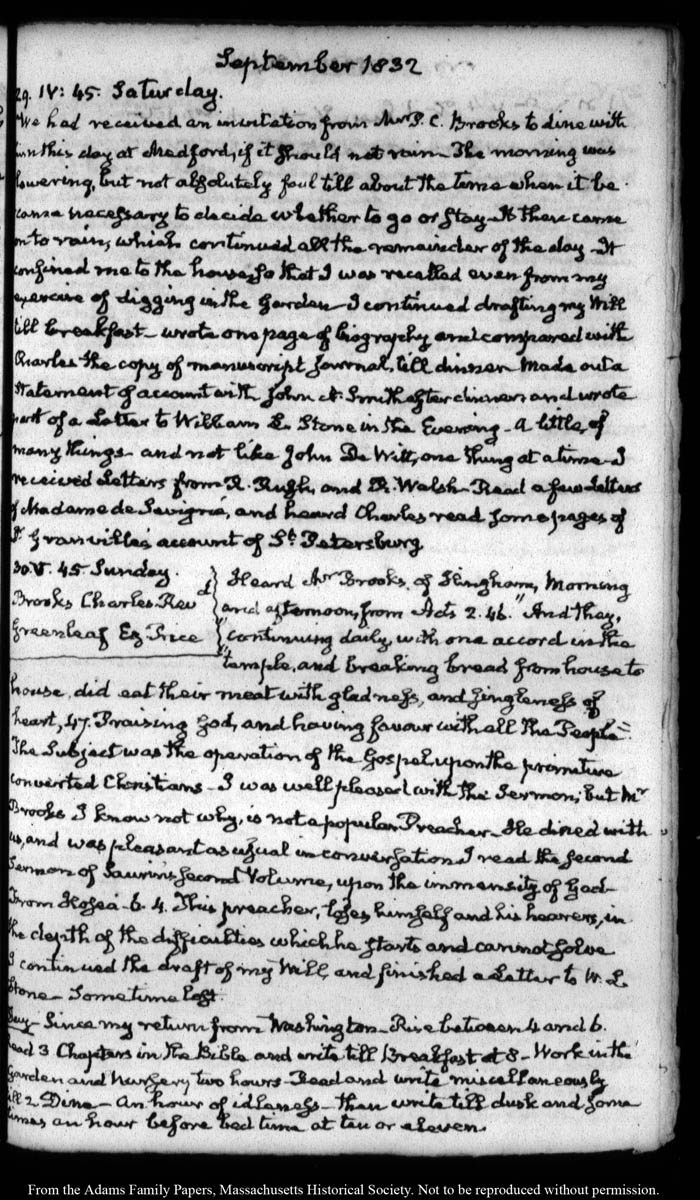 September 1832
29. IV: 45. Saturday.
We had received an invitation from Mr P. C. Brooks to dine with
him this day at Medford, if it should not rain— The morning was
lowering, but not absolutely foul till about the time when it be-
came necessary to decide whether to go or stay— It there came
on to rain, which continued all the remainder of the day— It
confined me to the house, so that I was recalled even from my
exercise of digging in the Garden— I continued drafting my Will
till breakfast— wrote one page of biography and compared with
Charles the copy of manuscript Journal, till dinner Made out a
Statement of account with John A. Smith after dinner and wrote
part of a Letter to William L. Stone in the Evening— A little, of
many things— and not like John De Witt, one thing at a time— I
received Letters from R. Rush, and R. Walsh— Read a few Letters
of Madame de Sevigné, and heard Charles read some pages of
Dr Granville's account of St. Petersburg
30. V. 45. Sunday.
Brooks Charles Revd
Greenleaf Price
Heard Mr Brooks, of Hingham, Morning
and afternoon, from Acts 2. 46. "And they,
"continuing daily with one accord in the
"temple, and breaking bread from house to
house, did eat their meat with gladness, and singleness of
heart, 47. Praising God, and having favour with all the People"
The Subject was the operation of the Gospel, upon the primitive
converted Christians— I was well pleased with the Sermon; but Mr
Brooks I know not why, is not a popular Preacher— He dined with
us, and was pleasant as usual in conversation I read the second
Sermon of Saurin's second Volume, upon the immensity of God—
From Hosea 6. 4. This preacher, loses himself and his hearers, in
the depth of the difficulties which he starts and cannot solve
I continued the draft of my Will, and finished a Letter to W. L.
Stone— Some time lost.
Day— Since my return from Washington— Rise between 4 and 6.
read 3 Chapters in the Bible and write till Breakfast at 8— Work in the
Garden and Nursery two hours— Read and write miscellaneously
till 2 Dine— An hour of idleness— then write till dusk and some
times an hour before bed time at ten or eleven.
From the Adams Family Papers, Massachusetts Historical Society. Not to be reproduced without permission.